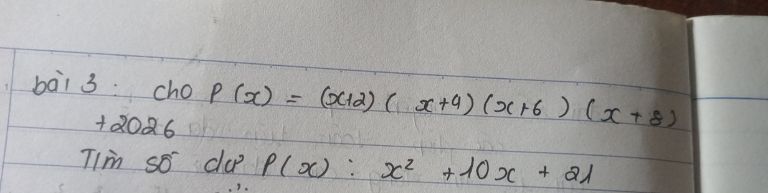 bài 3 : cho P(x) = (x+2) ( x+4) (x+6 ) (x + 8)
+2026
Tìm số dư P(x) : x² +10x + 21